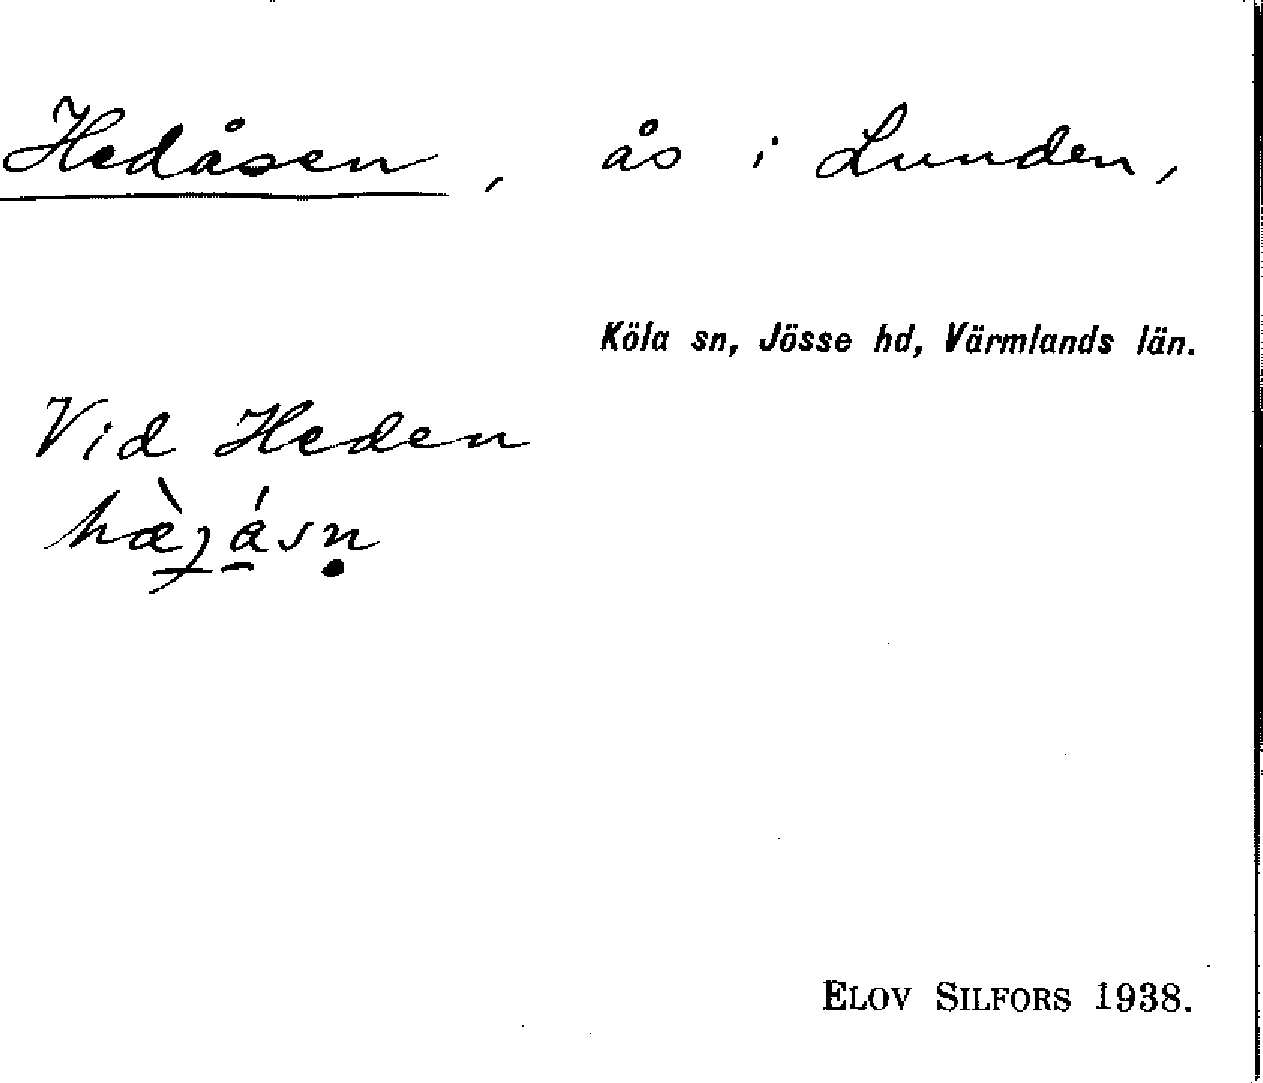 Hedåsen, ås i Lunden,
Köla sn, Jösse hd, Värmlands län.
Vid Heden
Elov Silfors 1938.